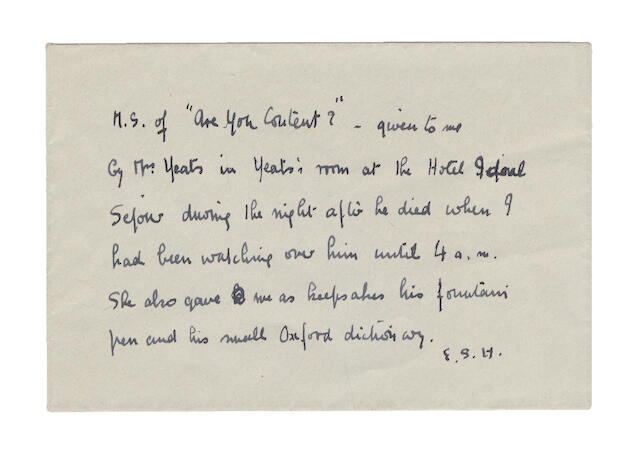 M.S. of "Are You Content?" - given to me
by Mrs Yeats in Yeats's room at the Hotel Ideal
Sejour during the night after he died when I
had been watching over him until 4 a.m.
She also gave me as keepsakes his fountain
pen and his small Oxford dictionary.
E.S.H.